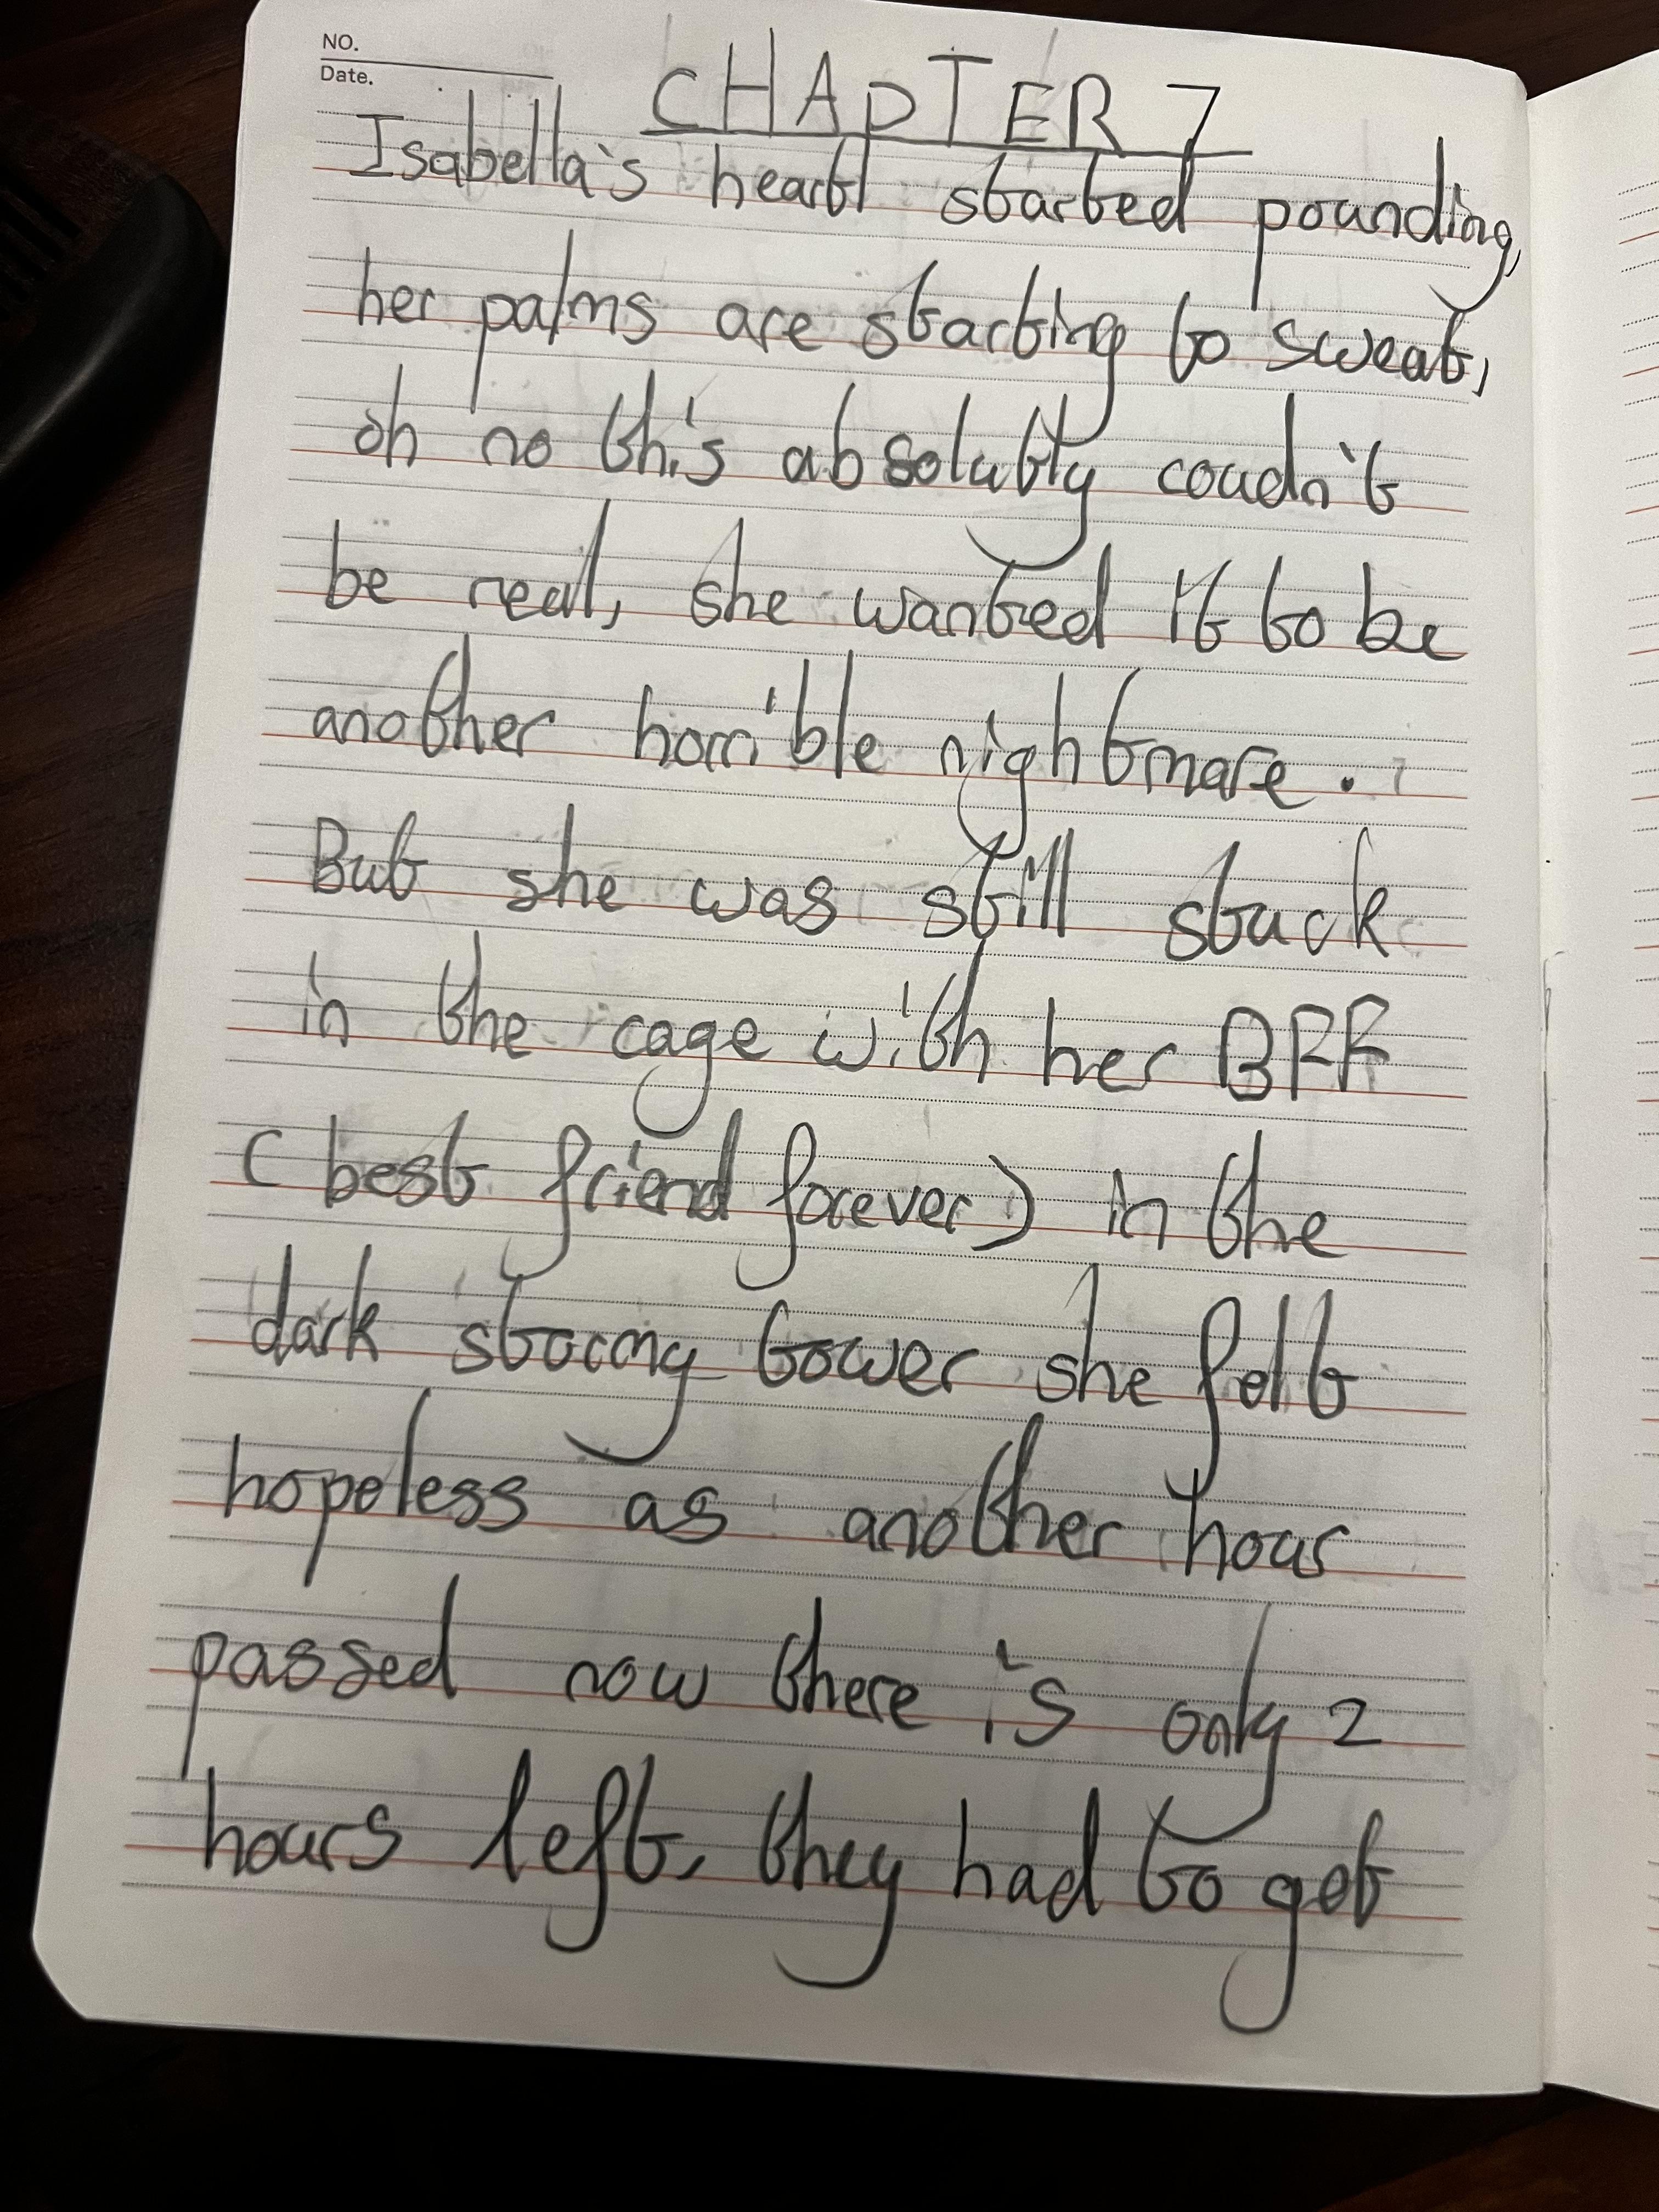 NO.
Date.
CHAPTER 7
Isabella's heart started pounding,
her palms are starting to sweat,
oh no this absolutly coudn't
be real, she wanted it to be
another horrible nightmare.
But she was still stuck
in the cage with her BFF
(best friend forever) in the
dark stormy tower she felt
hopeless as another hour
passed now there is only 2
hours left, they had to get